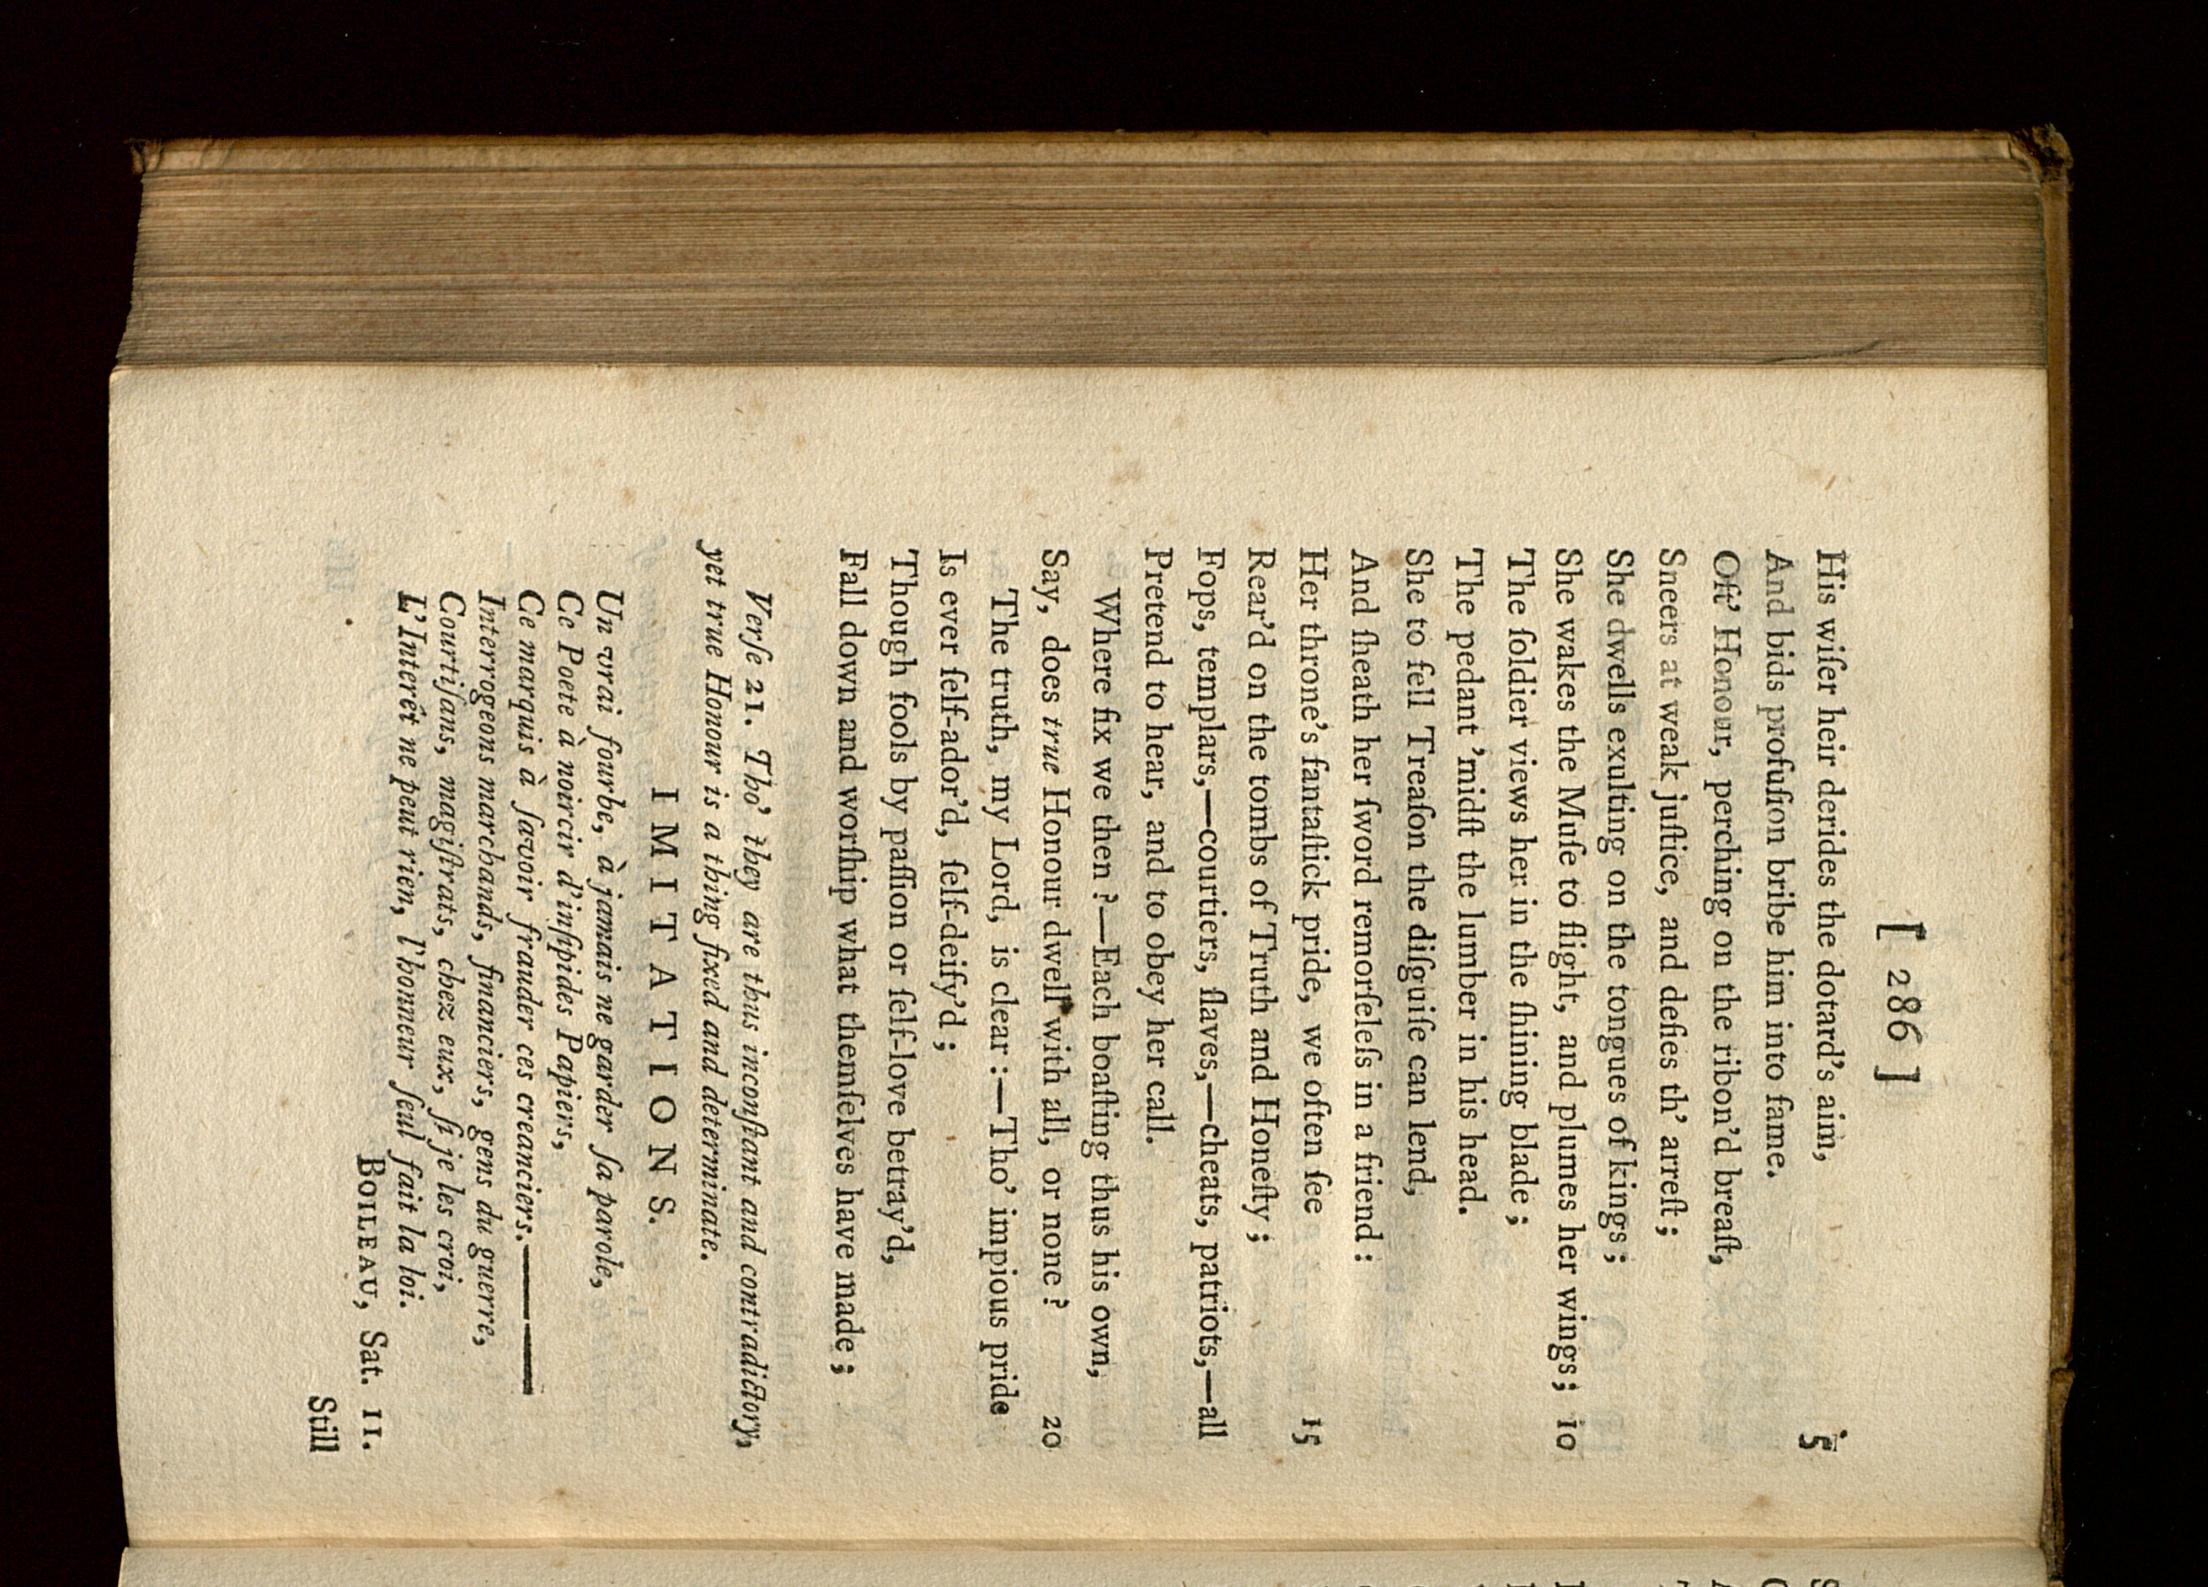 [ 286 ]
His wiſer heir derides the dotard's aim, 5
And bids profuſion bribe him into fame.
Oft' Honour, perching on the ribon'd breaſt,
Sneers at weak juſtice, and defies th' arreſt;
She dwells exulting on the tongues of kings;
She wakes the Muſe to flight, and plumes her wings; 10
The ſoldier views her in the ſhining blade;
The pedant 'midſt the lumber in his head.
She to fell Treaſon the diſguiſe can lend,
And ſheath her ſword remorſeleſs in a friend:
Her throne's fantaſtick pride, we often ſee 15
Rear'd on the tombs of Truth and Honeſty;
Fops, templars,—courtiers, ſlaves,—cheats, patriots,—all
Pretend to hear, and to obey her call.
Where fix we then?—Each boaſting thus his own,
Say, does true Honour dwell with all, or none? 20
The truth, my Lord, is clear:—Tho' impious pride
Is ever ſelf-ador'd, ſelf-deify'd;
Though fools by paſſion or ſelf-love betray'd,
Fall down and worſhip what themſelves have made;
Verſe 21. Tho' they are thus inconſtant and contradictory,
yet true Honour is a thing fixed and determinate.
IMITATIONS.
Un vrai fourbe, à jamais ne garder ſa parole,
Ce Poete à noircir d'inſipides Papiers,
Ce marquis à ſavoir frauder ces creanciers.——
Interrogeons marchands, financiers, gens du guerre,
Courtiſans, magiſtrats, chez eux, ſi je les croi,
L'Interêt ne peut rien, l'honneur ſeul fait la loi.
BOILEAU, Sat. 11.
Still